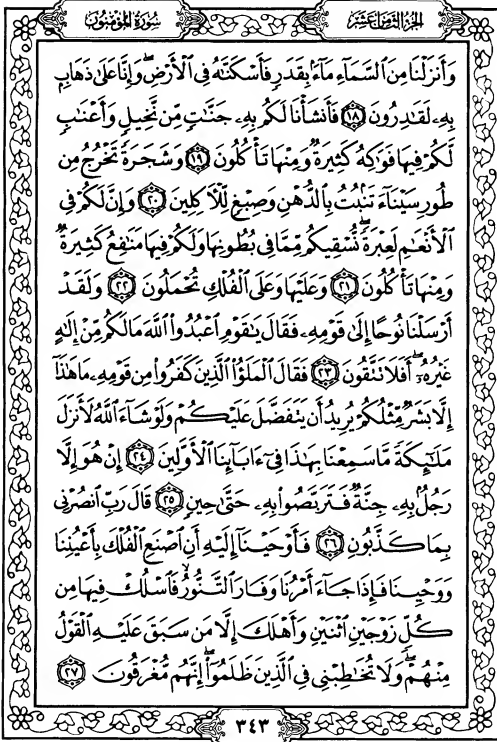 الجزء الثامن عشر
سورة المؤمنون
وَأَنزَلْنَا مِنَ السَّمَاءِ مَاءً بِقَدَرٍ فَأَسْكَنَّٰهُ فِي الْأَرْضِ ۖ وَإِنَّا عَلَىٰ ذَهَابٍ
بِهِۦ لَقَٰدِرُونَ ﴿١٨﴾ فَأَنشَأْنَا لَكُم بِهِۦ جَنَّٰتٍ مِّن نَّخِيلٍ وَأَعْنَٰبٍ
لَّكُمْ فِيهَا فَوَٰكِهُ كَثِيرَةٌ وَمِنْهَا تَأْكُلُونَ ﴿١٩﴾ وَشَجَرَةً تَخْرُجُ مِن
طُورِ سَيْنَاءَ تَنۢبُتُ بِالدُّهْنِ وَصِبْغٍ لِّلْـَٔاكِلِينَ ﴿٢٠﴾ وَإِنَّ لَكُمْ فِي
الْأَنْعَٰمِ لَعِبْرَةً ۖ نُّسْقِيكُم مِّمَّا فِي بُطُونِهَا وَلَكُمْ فِيهَا مَنَٰفِعُ كَثِيرَةٌ
وَمِنْهَا تَأْكُلُونَ ﴿٢١﴾ وَعَلَيْهَا وَعَلَى الْفُلْكِ تُحْمَلُونَ ﴿٢٢﴾ وَلَقَدْ
أَرْسَلْنَا نُوحًا إِلَىٰ قَوْمِهِۦ فَقَالَ يَٰقَوْمِ اعْبُدُوا۟ اللَّهَ مَا لَكُم مِّنْ إِلَٰهٍ
غَيْرُهُۥٓ ۖ أَفَلَا تَتَّقُونَ ﴿٢٣﴾ فَقَالَ الْمَلَؤُا۟ الَّذِينَ كَفَرُوا۟ مِن قَوْمِهِۦ مَا هَٰذَآ
إِلَّا بَشَرٌ مِّثْلُكُمْ يُرِيدُ أَن يَتَفَضَّلَ عَلَيْكُمْ وَلَوْ شَاءَ اللَّهُ لَأَنزَلَ
مَلَٰٓئِكَةً مَّا سَمِعْنَا بِهَٰذَا فِيٓ ءَابَآئِنَا الْأَوَّلِينَ ﴿٢٤﴾ إِنْ هُوَ إِلَّا
رَجُلٌۢ بِهِۦ جِنَّةٌ فَتَرَبَّصُوا۟ بِهِۦ حَتَّىٰ حِينٍ ﴿٢٥﴾ قَالَ رَبِّ انصُرْنِي
بِمَا كَذَّبُونِ ﴿٢٦﴾ فَأَوْحَيْنَآ إِلَيْهِ أَنِ اصْنَعِ الْفُلْكَ بِأَعْيُنِنَا
وَوَحْيِنَا فَإِذَا جَاءَ أَمْرُنَا وَفَارَ التَّنُّورُ ۙ فَاسْلُكْ فِيهَا مِن
كُلٍّ زَوْجَيْنِ اثْنَيْنِ وَأَهْلَكَ إِلَّا مَن سَبَقَ عَلَيْهِ الْقَوْلُ
مِنْهُمْ ۖ وَلَا تُخَٰطِبْنِي فِي الَّذِينَ ظَلَمُوٓا۟ ۖ إِنَّهُم مُّغْرَقُونَ ﴿٢٧﴾
٣٤٣